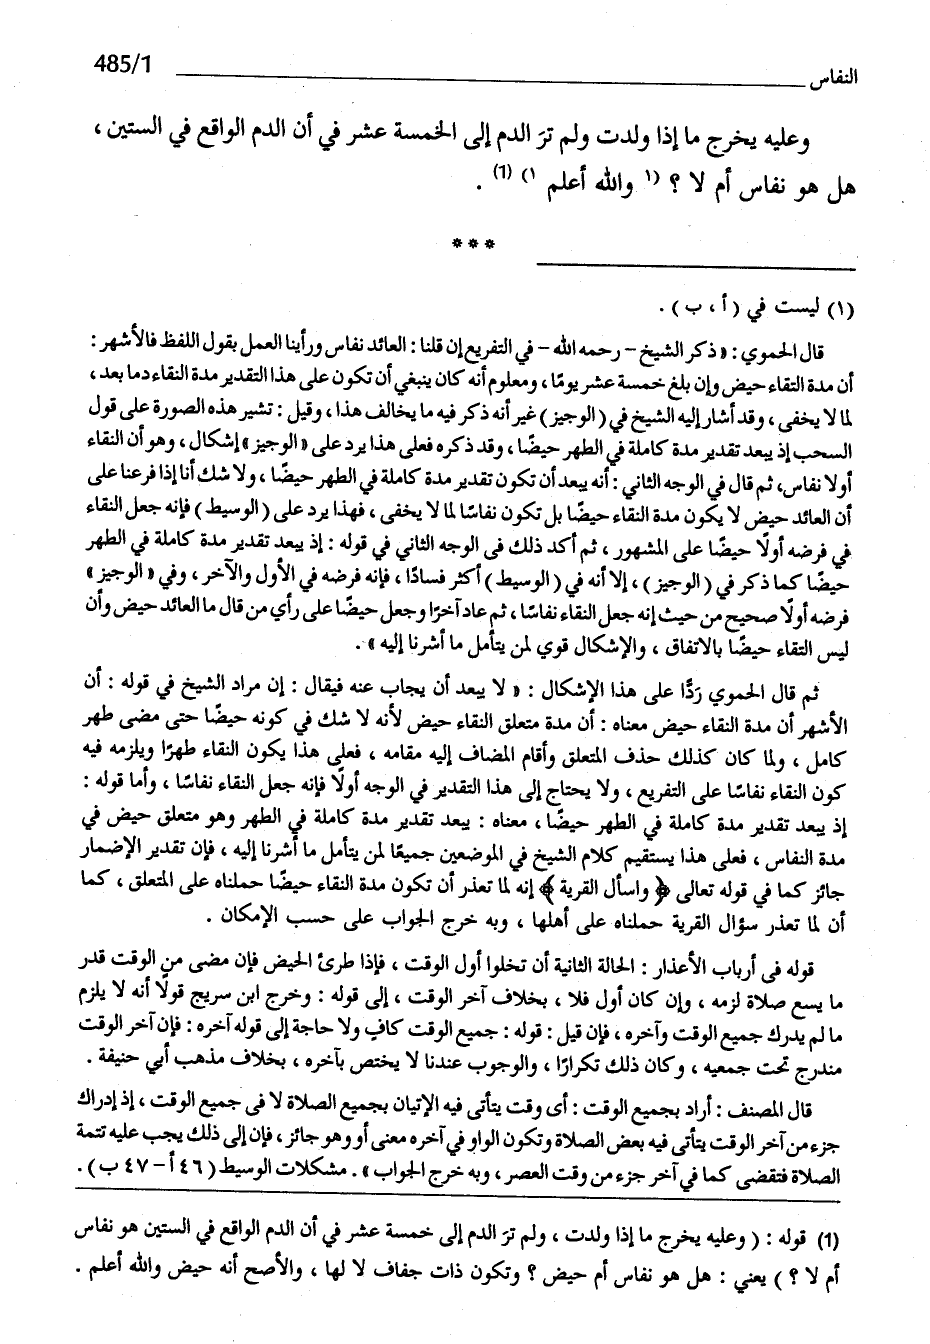 النفاس 485/1
وعليه يخرج ما إذا ولدت ولم ترَ الدم إلى الخمسة عشر في أن الدم الواقع في الستين ،
هل هو نفاس أم لا ؟ (١ والله أعلم ١) (1) .
***
(١) ليست في ( أ ، ب ) .
قال الحموي : « ذكر الشيخ – رحمه الله – في التفريع إن قلنا : العائد نفاس ورأينا العمل بقول اللفظ فالأشهر :
أن مدة التقاء حيض وإن بلغ خمسة عشر يومًا ، ومعلوم أنه كان ينبغي أن تكون على هذا التقدير مدة النقاء دما بعد ،
لما لا يخفى ، وقد أشار إليه الشيخ في ( الوجيز ) غير أنه ذكر فيه ما يخالف هذا ، وقيل : تشير هذه الصورة على قول
السحب إذ يبعد تقدير مدة كاملة في الطهر حيضًا ، وقد ذكره فعلى هذا يرد على « الوجيز » إشكال ، وهو أن النقاء
أولا نفاس، ثم قال في الوجه الثاني : أنه يبعد أن تكون تقدير مدة كاملة في الطهر حيضًا ، ولا شك أنا إذا فرعنا على
أن العائد حيض لا يكون مدة النقاء حيضًا بل تكون نفاسًا لما لا يخفى ، فهذا يرد على ( الوسيط ) فإنه جعل النقاء
في فرضه أولًا حيضًا على المشهور ، ثم أكد ذلك فى الوجه الثاني في قوله : إذ يبعد تقدير مدة كاملة في الطهر
حيضًا كما ذكر في ( الوجيز ) ، إلا أنه في ( الوسيط ) أكثر فسادًا ، فإنه فرضه في الأول والآخر ، وفي « الوجيز »
فرضه أولًا صحيح من حيث إنه جعل النقاء نفاسًا ، ثم عاد آخرًا وجعل حيضًا على رأي من قال ما العائد حيض وأن
ليس التقاء حيضًا بالاتفاق ، والإشكال قوي لمن يتأمل ما أشرنا إليه » .
ثم قال الحموي رَدًّا على هذا الإشكال : « لا يبعد أن يجاب عنه فيقال : إن مراد الشيخ في قوله : أن
الأشهر أن مدة النقاء حيض معناه : أن مدة متعلق النقاء حيض لأنه لا شك في كونه حيضًا حتى مضى طهر
كامل ، ولما كان كذلك حذف المتعلق وأقام المضاف إليه مقامه ، فعلى هذا يكون النقاء طهرًا ويلزمه فيه
كون النقاء نفاسًا على التفريع ، ولا يحتاج إلى هذا التقدير في الوجه أولًا فإنه جعل النقاء نفاسًا ، وأما قوله :
إذ يبعد تقدير مدة كاملة في الطهر حيضًا ، معناه : يبعد تقدير مدة كاملة في الطهر وهو متعلق حيض في
مدة النفاس ، فعلى هذا يستقيم كلام الشيخ في الموضعين جميعًا لمن يتأمل ما أشرنا إليه ، فإن تقدير الإضمار
جائز كما في قوله تعالى ﴿ واسأل القرية ﴾ إنه لما تعذر أن تكون مدة النقاء حيضًا حملناه على المتعلق ، كما
أن لما تعذر سؤال القرية حملناه على أهلها ، وبه خرج الجواب على حسب الإمكان .
قوله فى أرباب الأعذار : الحالة الثانية أن تخلوا أول الوقت ، فإذا طرئ الحيض فإن مضى من الوقت قدر
ما يسع صلاة لزمه ، وإن كان أول فلا ، بخلاف آخر الوقت ، إلى قوله : وخرج ابن سريج قولًا أنه لا يلزم
ما لم يدرك جميع الوقت وآخره ، فإن قيل : قوله : جميع الوقت كافٍ ولا حاجة إلى قوله آخره : فإن آخر الوقت
مندرج تحت جمعيه ، وكان ذلك تكرارًا ، والوجوب عندنا لا يختص بآخره ، بخلاف مذهب أبي حنيفة .
قال المصنف : أراد بجميع الوقت : أى وقت يتأتى فيه الإتيان بجميع الصلاة لا فى جميع الوقت ، إذ إدراك
جزء من آخر الوقت يتأتى فيه بعض الصلاة وتكون الواو في آخره معنى أو وهو جائز ، فإن إلى ذلك يجب عليه تتمة
الصلاة فتقضى كما في آخر جزء من وقت العصر ، وبه خرج الجواب » . مشكلات الوسيط ( ٤٦ أ – ٤٧ ب ) .
(1) قوله : ( وعليه يخرج ما إذا ولدت ، ولم ترَ الدم إلى خمسة عشر في أن الدم الواقع في الستين هو نفاس
أم لا ؟ ) يعني : هل هو نفاس أم حيض ؟ وتكون ذات جفاف لا لها ، والأصح أنه حيض والله أعلم .